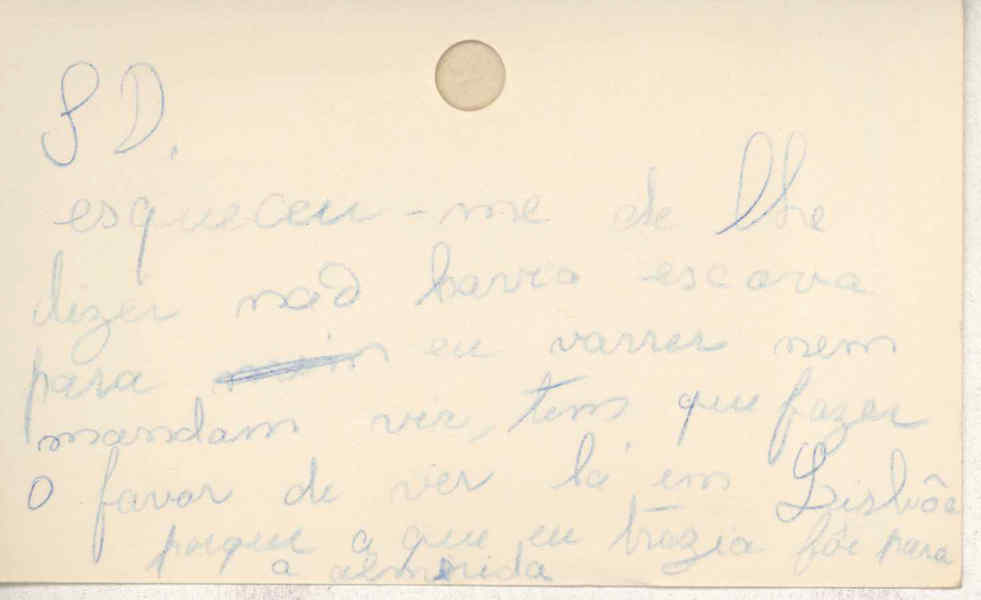 S D.
esqueceu-me de lhe
dizer naõ havia escova
para eu varrer nem
mandam vir, tem que fazer
o favor de ver lá em Lisbôa
porque a que eu trazia foi para
a almoinda